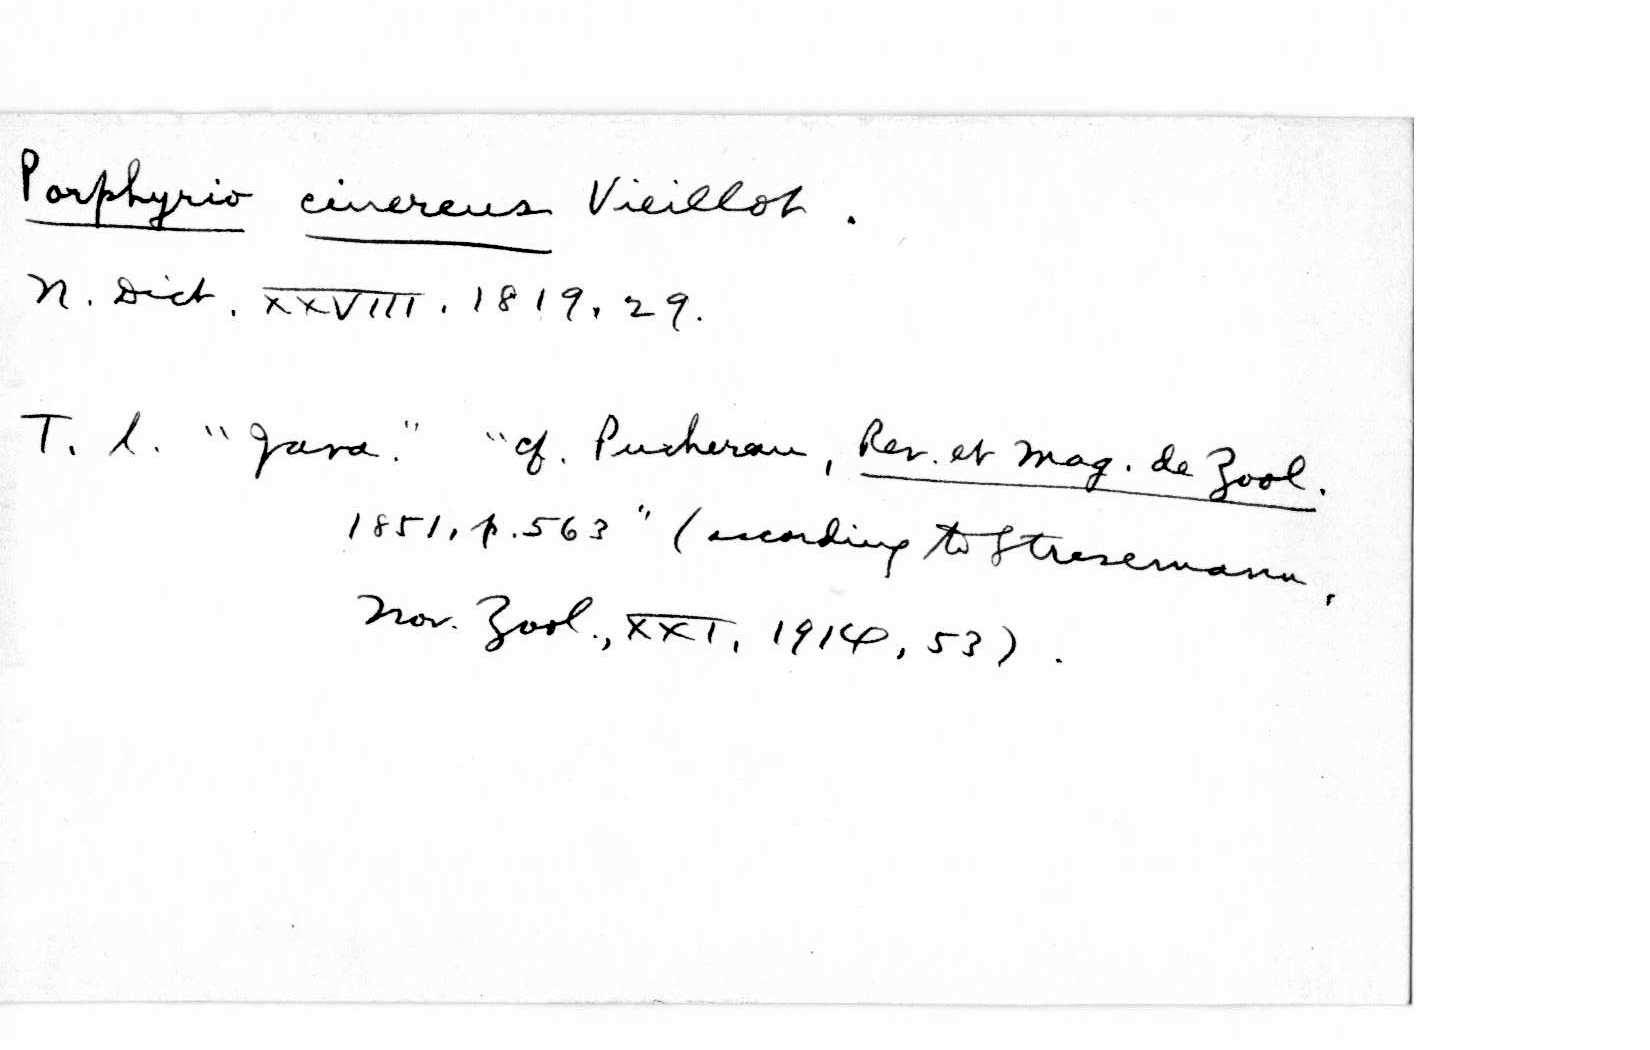 Porphyrio cinereus Vieillot.
N. Dict. XXVIII. 1819. 29.
T. l. "Java." "cf. Pucheran, Rev. et Mag. de Zool.
1851, p. 563" (according to Stresemann,
Nov. Zool., XXI, 1914, 53).